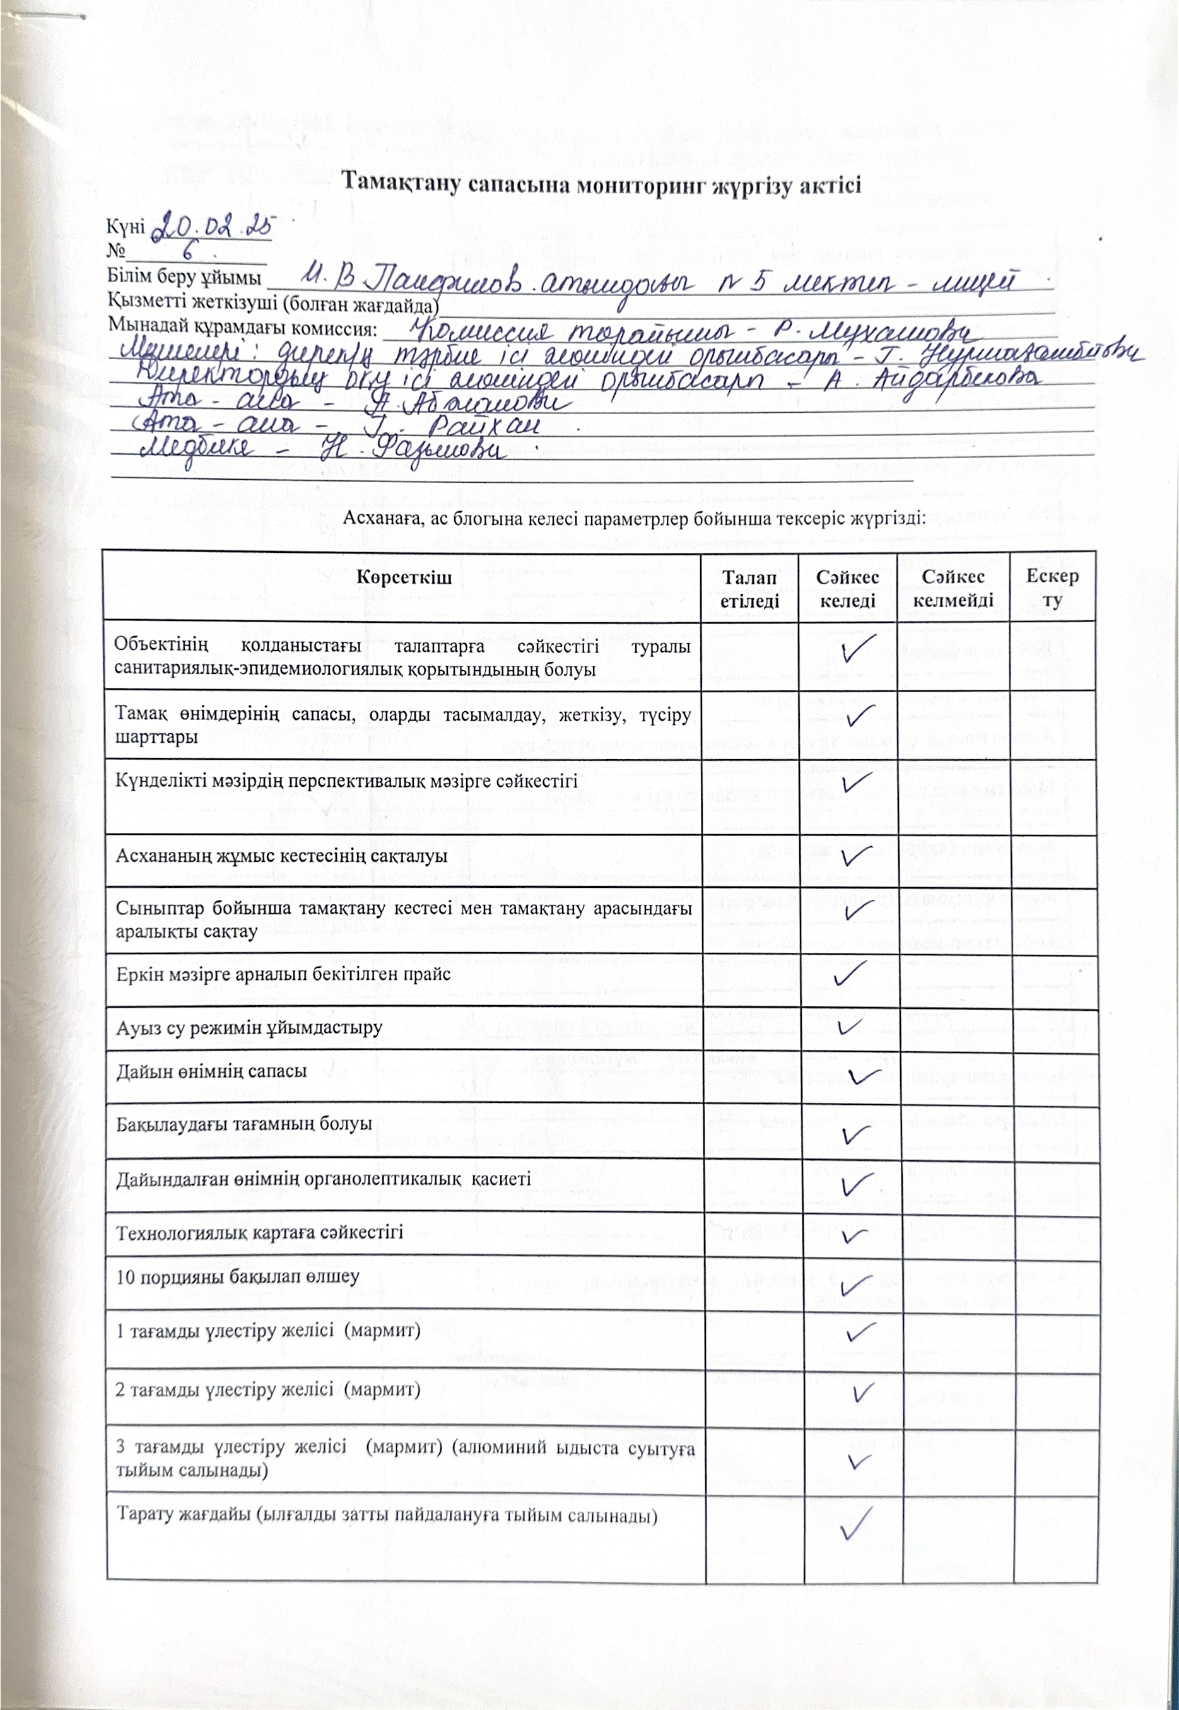 Тамақтану сапасына мониторинг жүргізу актісі
Күні 20.02.25
№ 6
Білім беру ұйымы И. В Панфилов атындағы №5 мектеп - лицей
Қызметті жеткізуші (болған жағдайда)
Мынадай құрамдағы комиссия: Комиссия төрайымы - Р. Мухашова
Мүшелері: тәрбие ісі жөніндегі орынбасары - Г.
Директордың оқу ісі жөніндегі орынбасары - А. Айдарбекова
Ата - ана - А.
Ата - ана - Г. Райхан
Медбике - Н.
Асханаға, ас блогына келесі параметрлер бойынша тексеріс жүргізді:
Көрсеткіш Талап етіледі Сәйкес келеді Сәйкес келмейді Ескер ту
Объектінің қолданыстағы талаптарға сәйкестігі туралы ✓
санитариялық-эпидемиологиялық қорытындының болуы
Тамақ өнімдерінің сапасы, оларды тасымалдау, жеткізу, түсіру ✓
шарттары
Күнделікті мәзірдің перспективалық мәзірге сәйкестігі ✓
Асхананың жұмыс кестесінің сақталуы ✓
Сыныптар бойынша тамақтану кестесі мен тамақтану арасындағы ✓
аралықты сақтау
Еркін мәзірге арналып бекітілген прайс ✓
Ауыз су режимін ұйымдастыру ✓
Дайын өнімнің сапасы ✓
Бақылаудағы тағамның болуы ✓
Дайындалған өнімнің органолептикалық қасиеті ✓
Технологиялық картаға сәйкестігі ✓
10 порцияны бақылап өлшеу ✓
1 тағамды үлестіру желісі (мармит) ✓
2 тағамды үлестіру желісі (мармит) ✓
3 тағамды үлестіру желісі (мармит) (алюминий ыдыста суытуға ✓
тыйым салынады)
Тарату жағдайы (ылғалды затты пайдалануға тыйым салынады) ✓